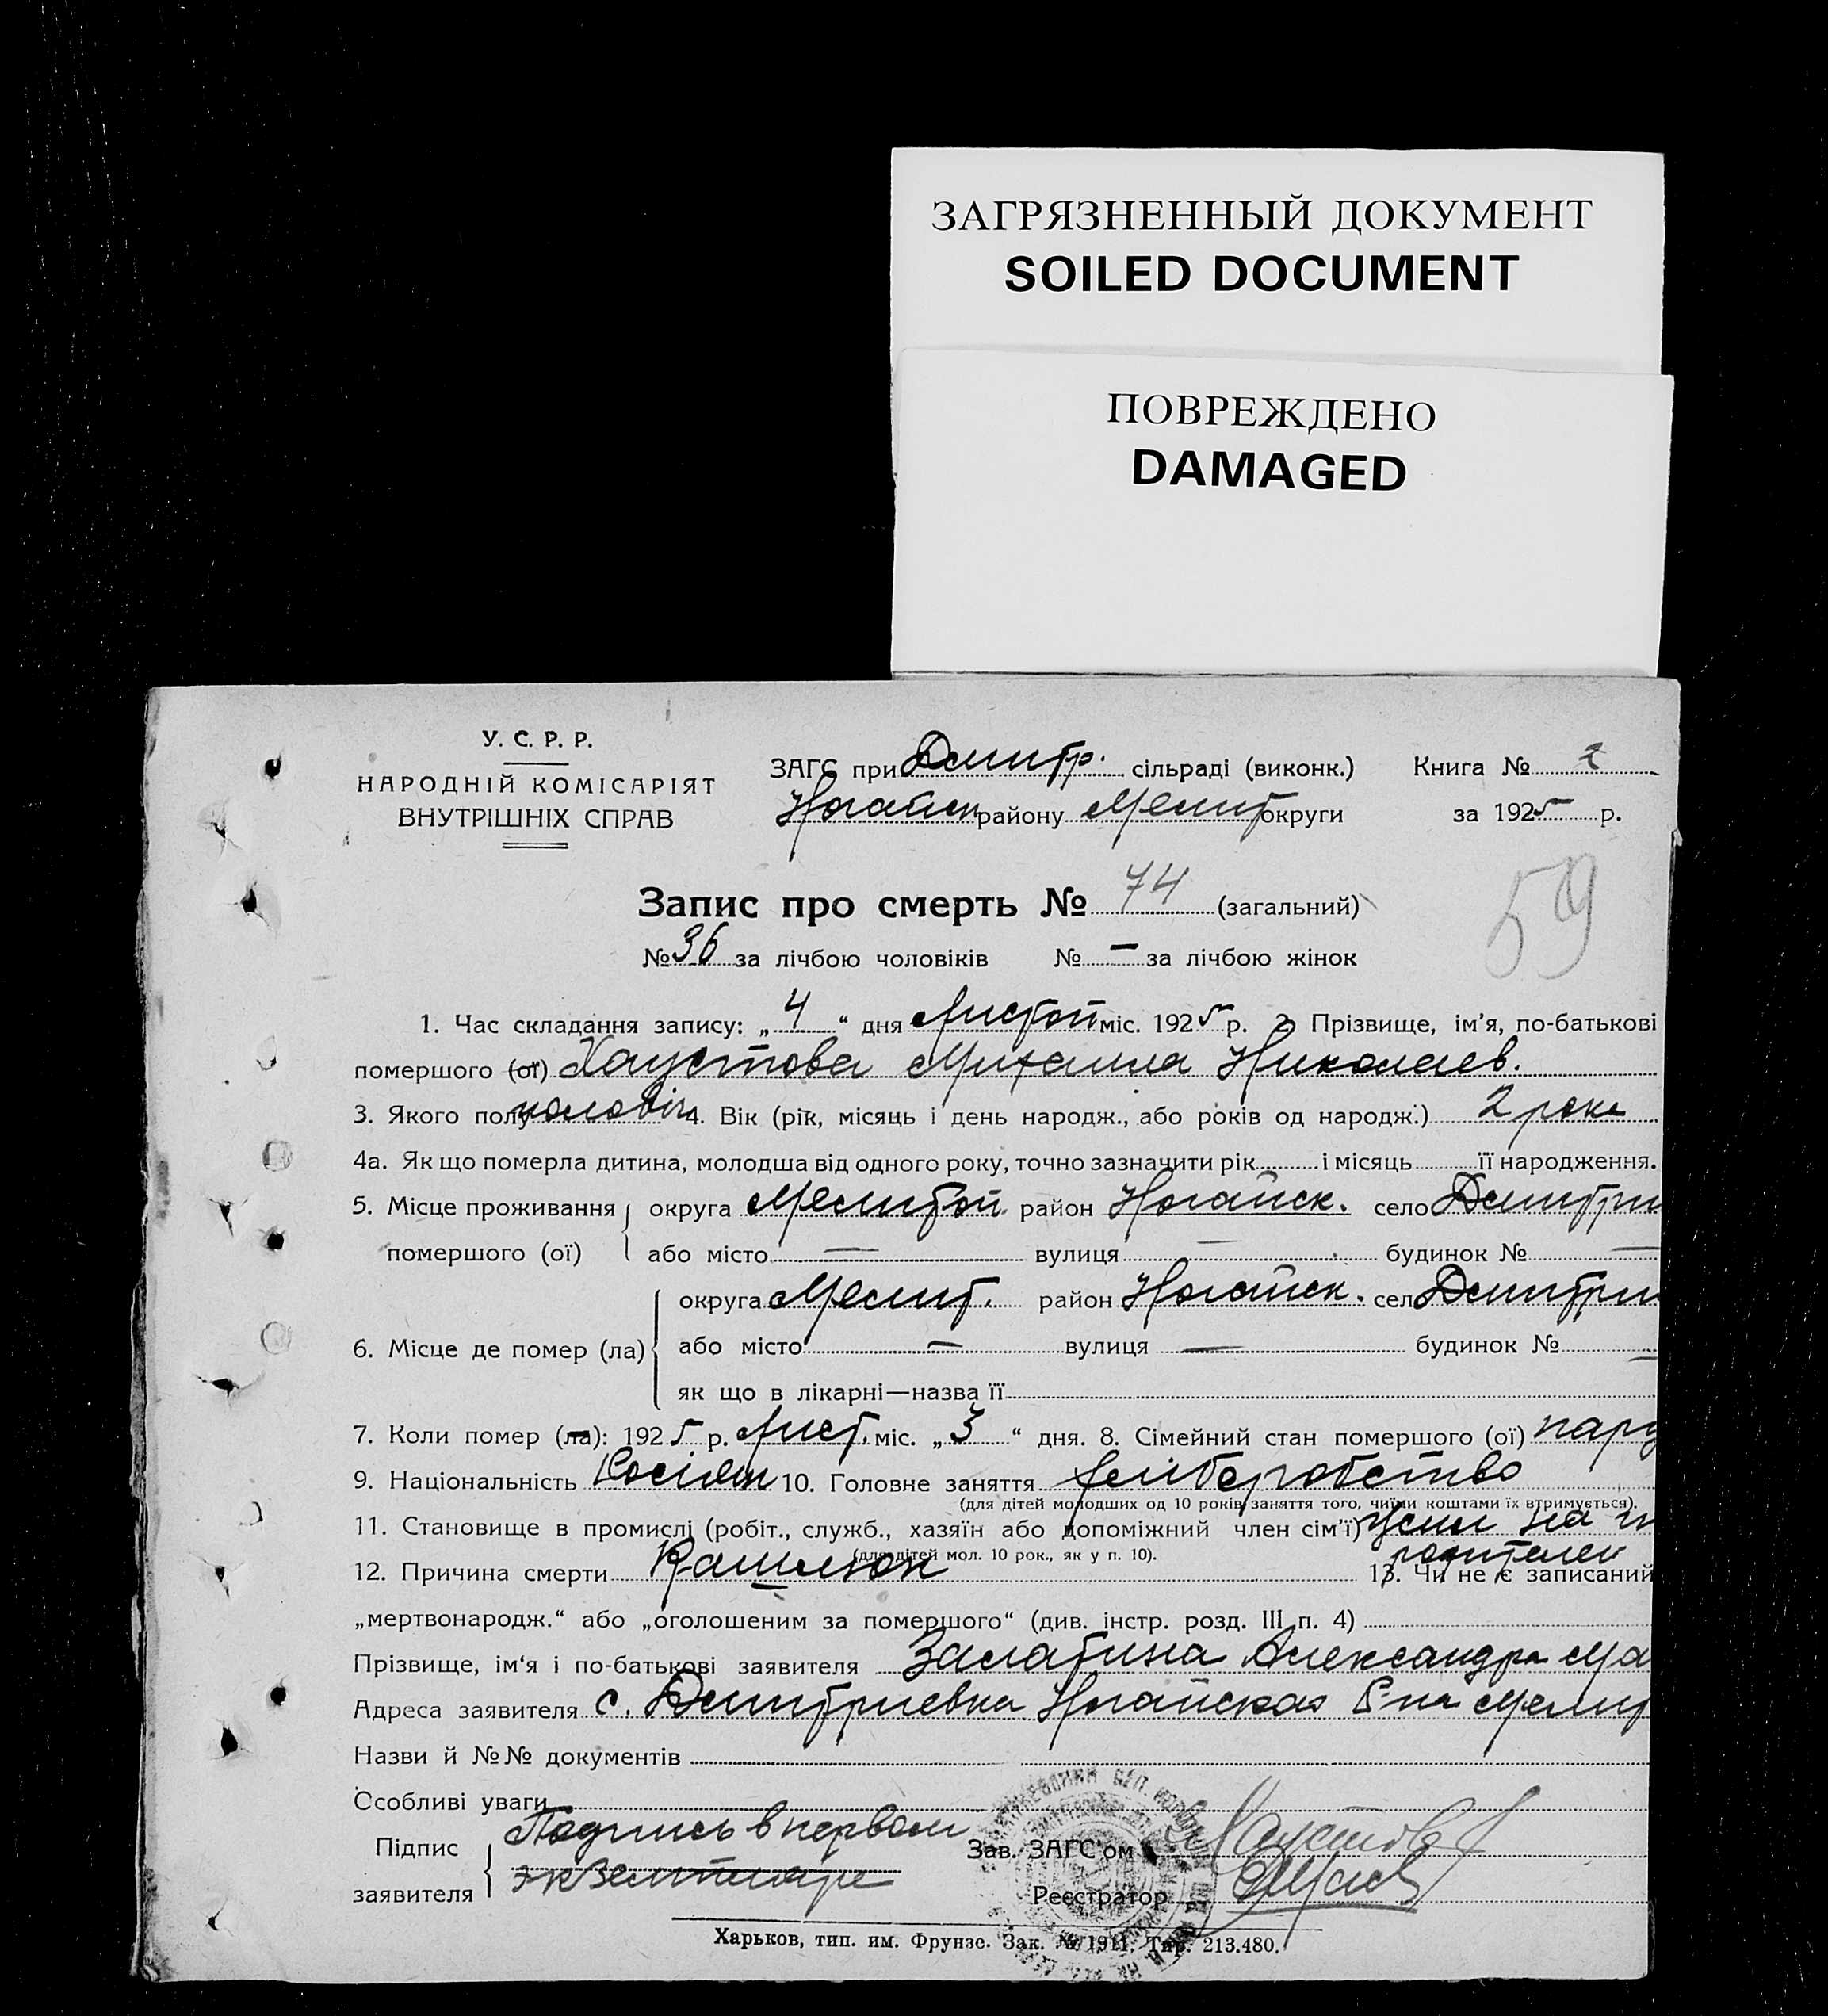 ЗАГРЯЗНЕННЫЙ ДОКУМЕНТ
SOILED DOCUMENT
ПОВРЕЖДЕНО
DAMAGED
У. С. Р. Р.
НАРОДНІЙ КОМІСАРІЯТ
ВНУТРІШНІХ СПРАВ
ЗАГС при Дмитр. сільраді (виконк.) Книга № 2
Ногайск району Мелит округи за 1925 р.
59
Запис про смерть № 74 (загальний)
№ 36 за лічбою чоловіків № — за лічбою жінок
1. Час складання запису: „ 4 “ дня Листоп міс. 1925 р. 2. Прізвище, ім'я, по-батькові
помершого (ої) Хаустова Михаила Николаев.
3. Якого полу чоловіч 4. Вік (рік, місяць і день народж., або років од народж.) 2 роки
4а. Як що померла дитина, молодша від одного року, точно зазначити рік і місяць її народження.
5. Місце проживання округа Мелитоп. район Ногайск. село Дмитри
помершого (ої) або місто — вулиця — будинок № —
округа Мелит. район Ногайск. село Дмитри
6. Місце де помер (ла) або місто — вулиця — будинок № —
як що в лікарні—назва її
7. Коли помер (ла): 1925 р. Лист. міс. „ 3 “ дня. 8. Сімейний стан помершого (ої) пару
9. Національність Росіян 10. Головне заняття хліборобство
(для дітей молодших од 10 років, заняття того, чиїми коштами їх втримується).
11. Становище в промислі (робіт., служб., хазяїн або допоміжний член сім'ї) на
(для дітей мол. 10 рок., як у п. 10). родителей
12. Причина смерти Кашлюк 13. Чи не є записаний
„мертвонародж.“ або „оголошеним за помершого“ (див. інстр. розд. III п. 4)
Прізвище, ім'я і по-батькові заявителя Александра Ма
Адреса заявителя с. Дмитриевка Ногайская Р-на Мелит
Назви й №№ документів
Особливі уваги
Підпис Подпись в первом Зав. ЗАГС'ом Хаустов
заявителя экземпляре Реєстратор
Харьков, тип. им. Фрунзе. Зак. № 1911. Тир. 213.480.